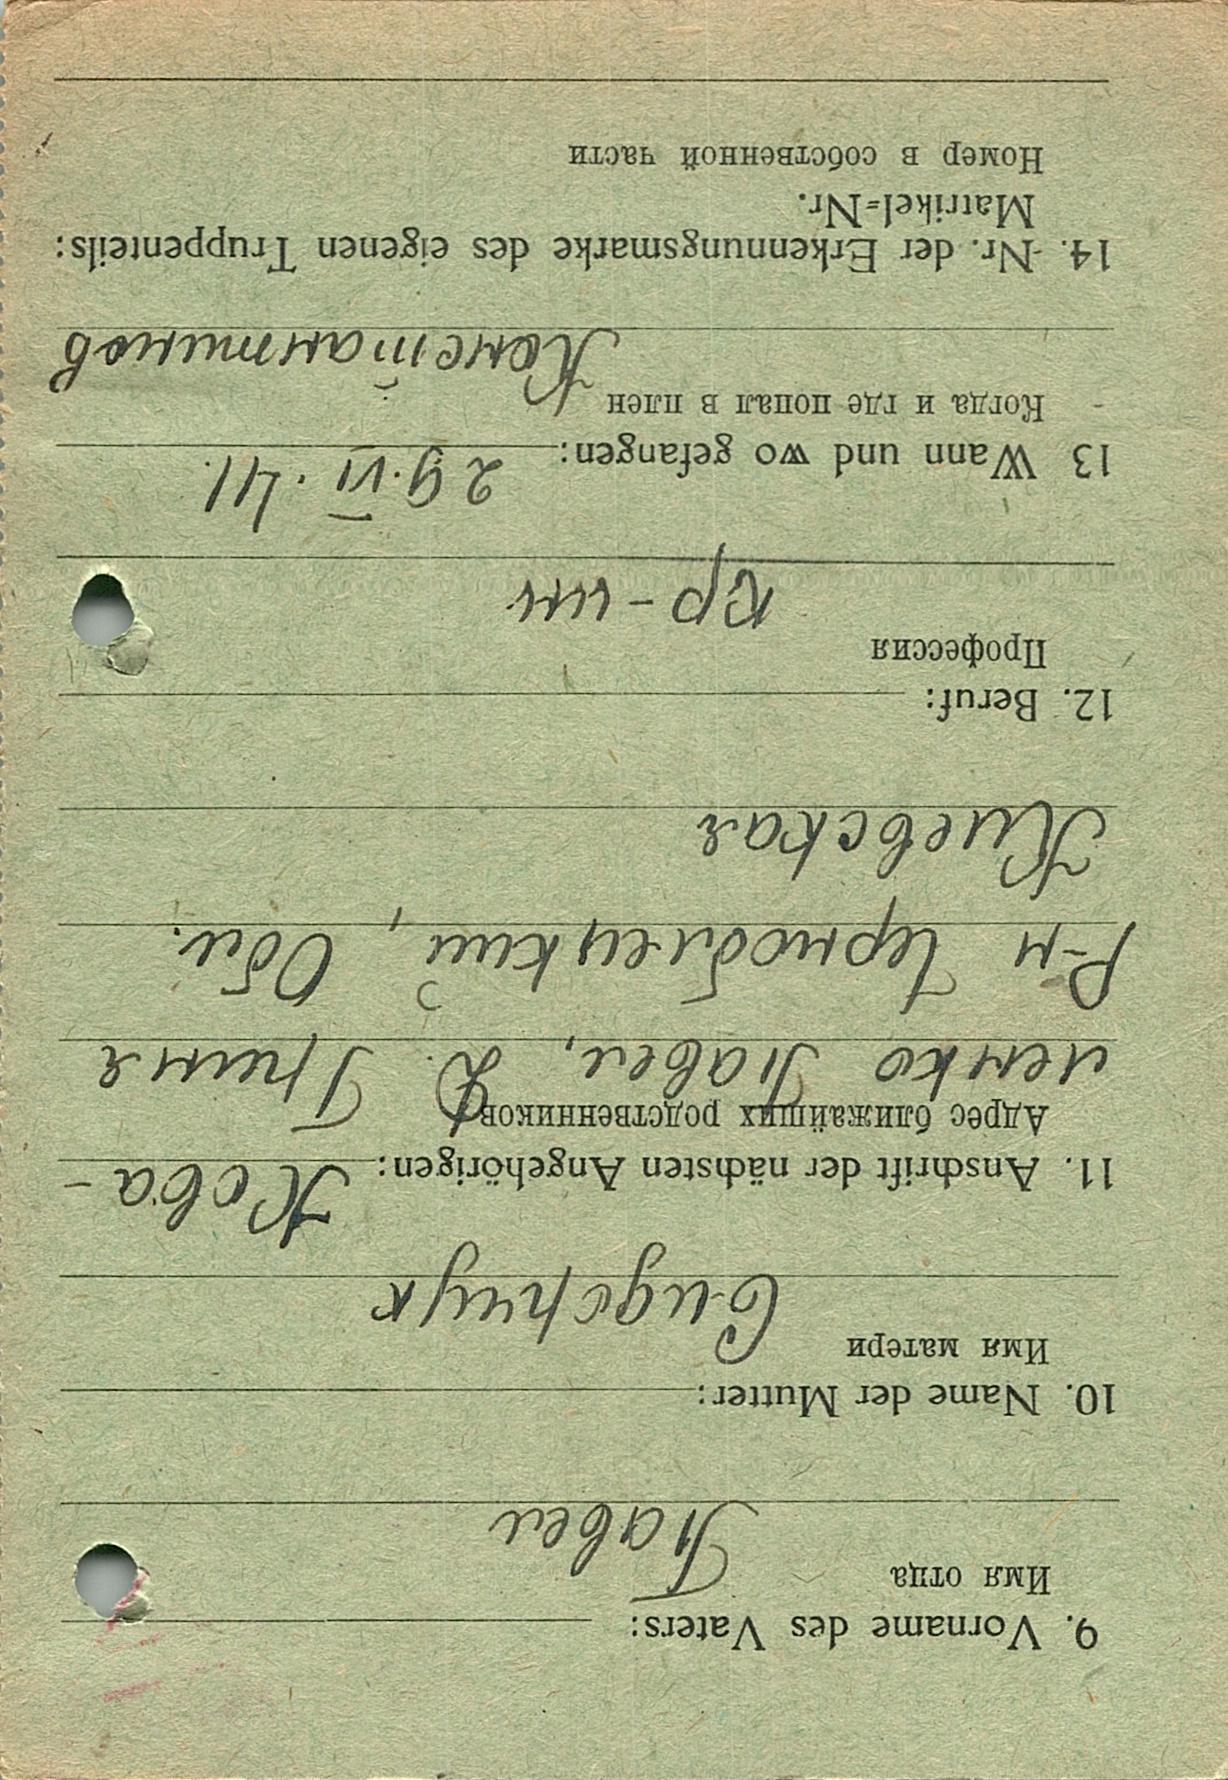 9. Vorname des Vaters:
Имя отца
Павел
10. Name der Mutter:
Имя матери
Сидорчук
11. Anschrift der nächsten Angehörigen: Кова-
Адрес ближайших родственников
ленко Павел, Д. Гриня
Р-н Чернобилецкий, Обл.
Киевская
12. Beruf:
Профессия
кр-ин
13 Wann und wo gefangen: 29.VI.41.
Когда и где попал в плен Константинов
14. Nr. der Erkennungsmarke des eigenen Truppenteils:
Matrikel=Nr.
Номер в собственной части